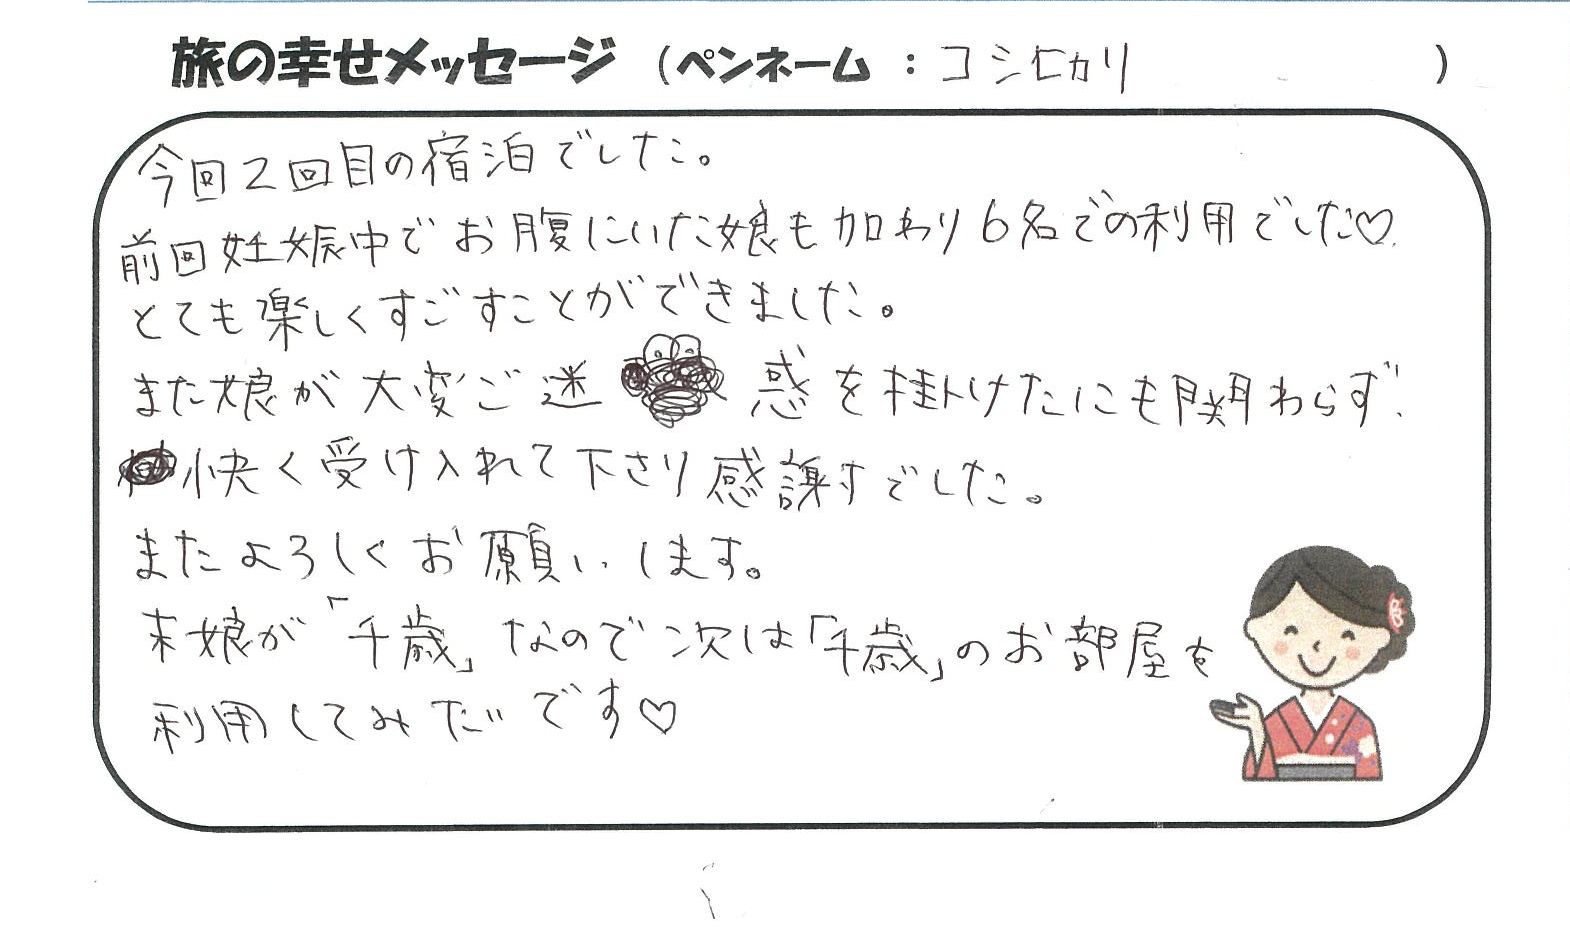 旅の幸せメッセージ （ペンネーム ： コシヒカリ ）
今回2回目の宿泊でした。
前回妊娠中でお腹にいた娘も加わり6名での利用でした♡
とても楽しくすごすことができました。
また娘が大変ご迷惑を掛けたにも関わらず
快く受け入れて下さり感謝すでした。
またよろしくお願いします。
末娘が「千歳」なので次は「千歳」のお部屋を
利用してみたいです♡